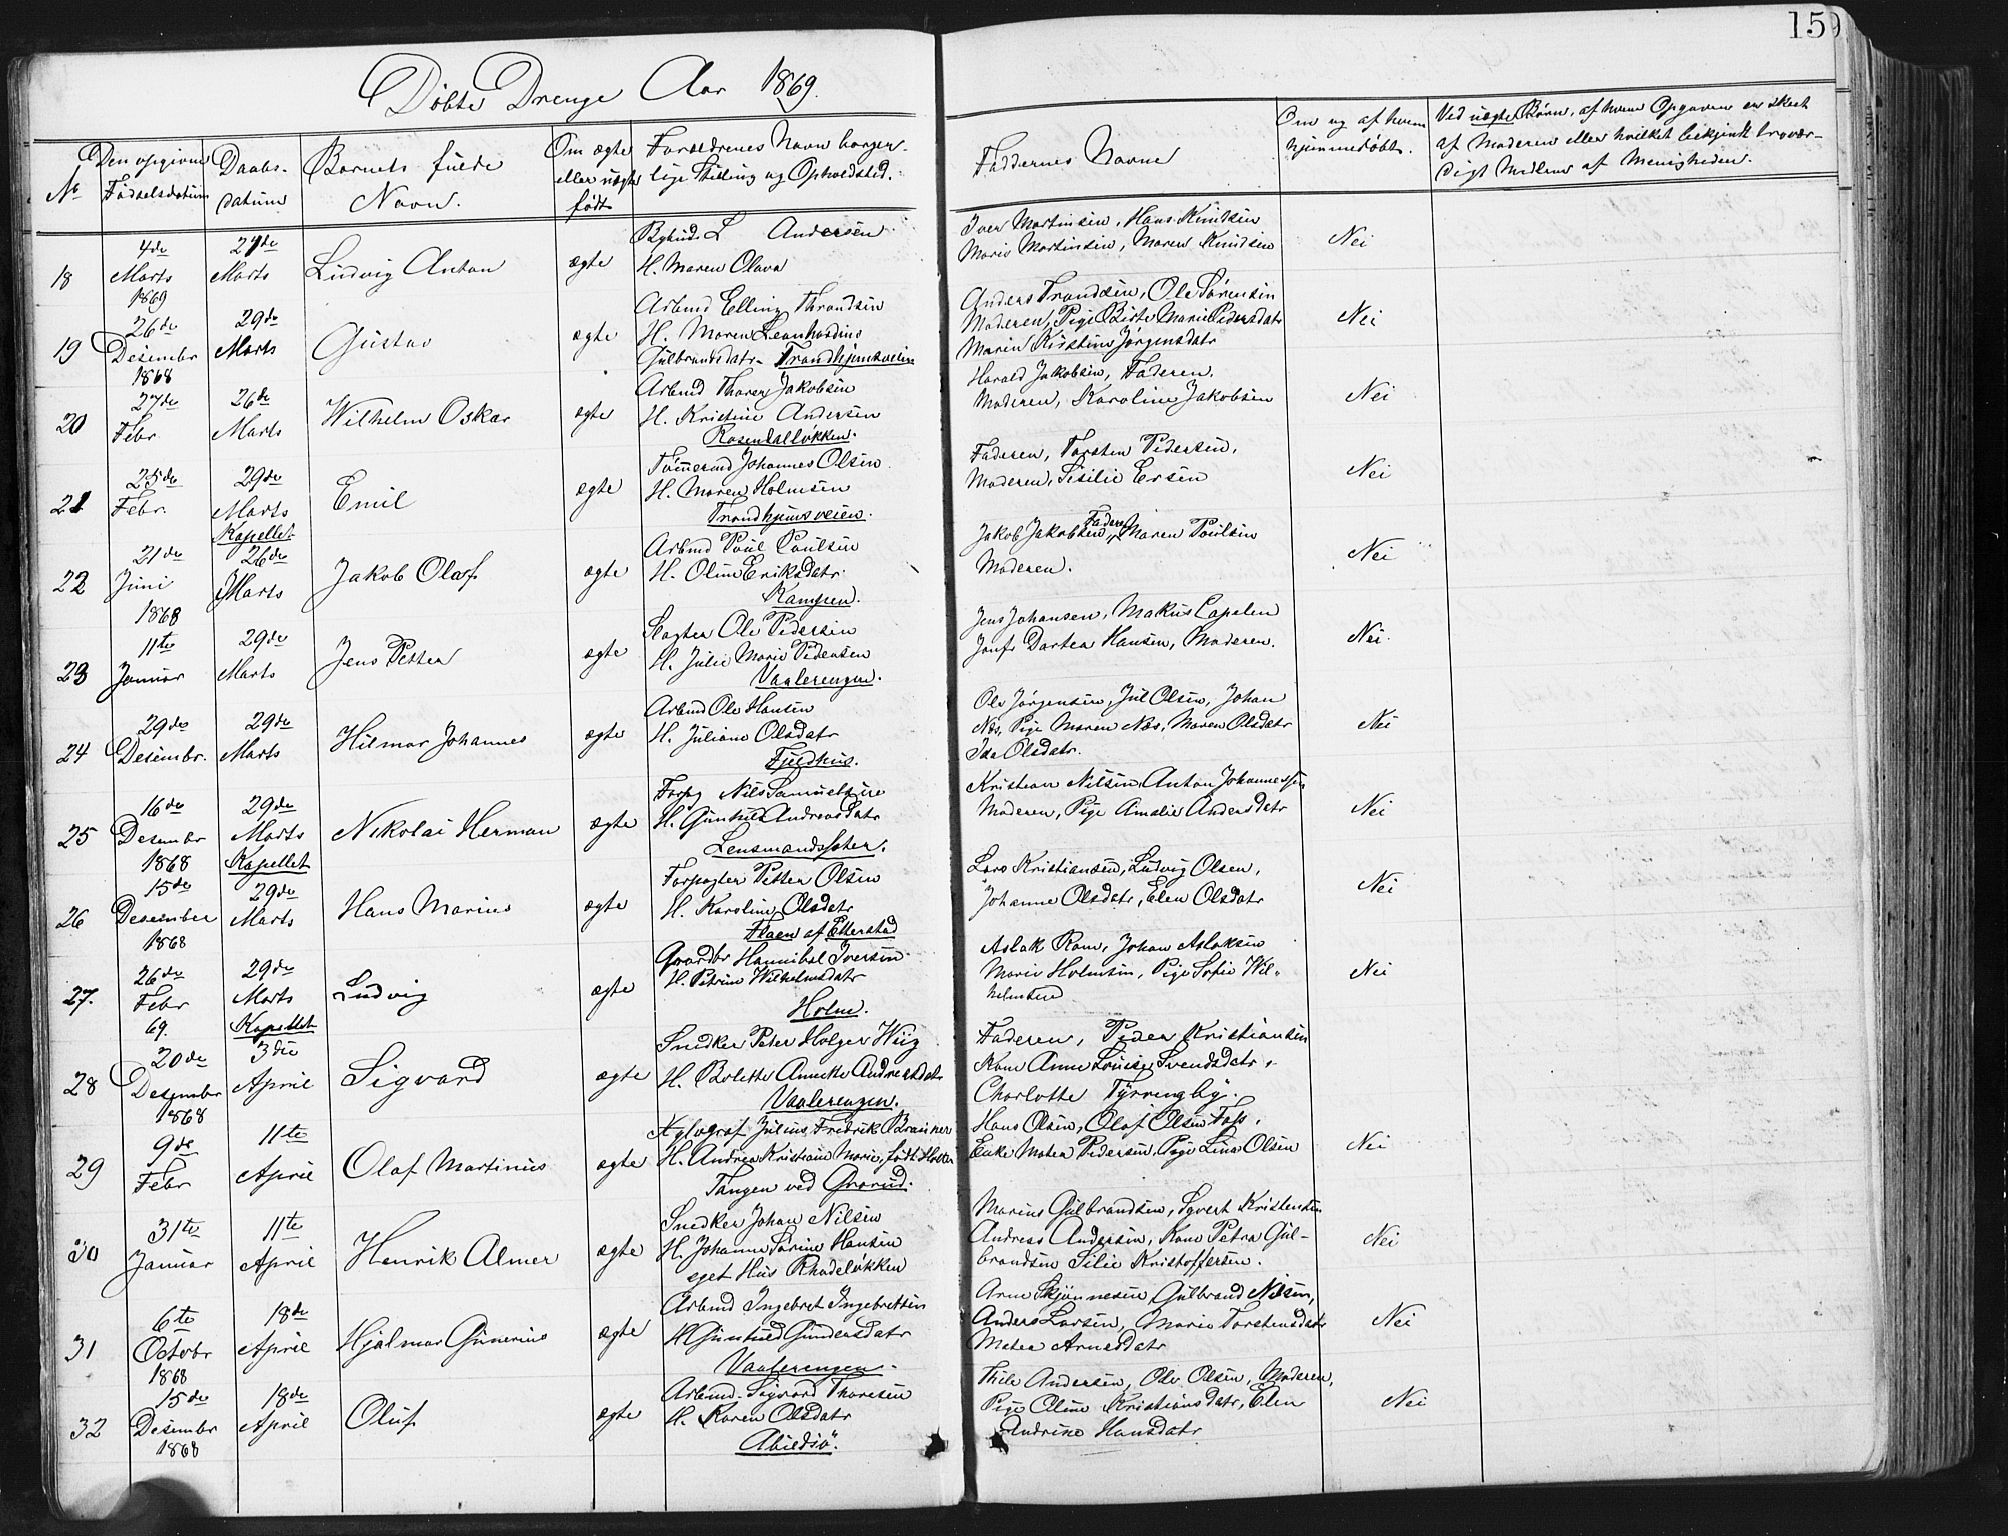 159
Döbte Drenge Aar 1869.
No
Den opgivne Fødselsdatum
Daabs-datum
Barnets fulde Navn.
Om ægte eller uægte født
Forældrenes Navn borger-lige Stilling og Opholdsted.
Faddernes Navne
Om og af hvem hjemmedøbt.
Ved uægte Børn, af hvem Opgaven er skeet
af Moderen eller hvilket bekjendt trovær-
digt Medlem af Menigheden.
18 4de Marts 1869 21de Marts Ludvig Anton ægte
Andersen
H. Maren Olava
Iver Martinsen, Hans Knudsen
Marie Martinsen, Maren Knudsen
Nei
19 26de Desembr 1868 29de Marts Gustav ægte
Arbmd Elling Throndsen
H. Maren Leonhardine
Gulbrandsdatr. Trondhjemsveien
Anders Trondsen, Ole Sørensen
Moderen, Pige Birte Marie Pedersdatr
Maren Kirstine Jørgensdatr
Nei
20 27de Febr 26de Marts Wilhelm Oskar ægte
Arbmd Thorer Jakobsen
H. Kristine Andersen
Rosendalløkken.
Harald Jakobsen, Faderen.
Moderen, Karoline Jakobsen
Nei
21 25de Febr. 29de Marts Kapellet Emil ægte
Tømermd Johannes Olsen
H. Maren Holmsen
Trondhjemsveien.
Faderen, Torsten Pedersen,
Moderen, Sisilie Ersen
Nei
22 21de Juni 1868 26de Marts Jakob Olaf ægte
Arbmd Poul Poulsen
H. Oline Eriksdatr.
Kampen.
Jakob Jakobsen, Faderen, Maren Poulsen
Moderen.
Nei
23 11te Januar 29de Marts Jens Petter ægte
Slagter Ole Pedersen
H. Julie Marie Pedersen
Vaalerengen.
Jens Johansen, Makus Capelen
Jonfr Dortea Hansen, Moderen.
Nei.
24 29de Desembr. 29de Marts Hilmar Johannes ægte
Arbmd Ole Hansen
H. Juliane Olsdatr
Fjeldhus.
Ole Jørgensen, Jul Olsen, Johan
Næs, Pige Maren Næs, Maren Olsdatr
Ida Olsdatr.
Nei
25 16de Desembr 1868 29de Marts Kapellet Nikolai Herman ægte
Forpg Nils Samuelsen
H. Gunhild Andreasdatr
Lensmandssæter.
Kristian Nilsen, Anton Johannessen
Moderen, Pige Amalie Andersdatr
Nei
26 15de Desember 1868 29de Marts Hans Marius ægte
Forpagter Petter Olsen
H. Karoline Olsdatr
Flaen af Etterstad
Lars Kristiansen, Ludvig Olsen,
Johanne Olsdatr, Elen Olsdatr
Nei
27. 26de Febr 69. 29de Marts Kapellet Ludvig ægte
Gaardbr Hannibal Iversen
H. Petrine Wilhelmsdatr
Holm.
Aslak Ram, Johan Aslaksen
Marie Holmsen, Pige Sofie Wil-
helmsen
Nei
28 20de Desember 1868 3die April Sigvard ægte
Snedker Peter Holger Wiig
H. Bolette Annette Andreasdatr
Vaalerengen.
Faderen, Peder Kristiansen
Kone Anne Louise Svendsdatr,
Charlotte Tyrringby.
29 9de Febr 11te April Olaf Martinius ægte
Xylograf Julius Fredrik Brauner
H. Andrea Kristiane Marie, født Holter
Tangen ved Grorud.
Hans Olsen, Olaf Olsen Foss,
Enke Matea Pedersen, Pige Lina Olsen
Nei
30 31te Januar 11te April Henrik Almer ægte
Snedker Johan Nilsen
H. Johanne Sørine Hansen
eget Hus Rhodeløkken
Marius Gulbrandsen, Syvert Kristensen
Andreas Andersen, Kone Petra Gul-
brandsen Silie Kristoffersen.
Nei
31 6te Octobr 1868 18de April Hjalmar Gunerius ægte
Arbmd Ingebret Ingebretsen
H Gunhild Gundersdatr
Vaalerengen.
Arne Skjønnesen, Gulbrand Nilsen,
Anders Larsen, Marie Torstensdatr
Matea Arnesdatr
Nei
32 15de Desembr 1868 18de April Oluf ægte
Arbmd. Sigvard Thoresen
H. Karen Olsdatr
Abildsö.
Thile Andersen, Ole Olsen, Moderen,
Pige Oline Kristiansdatr, Elen
Andrine Hansdatr
Nei